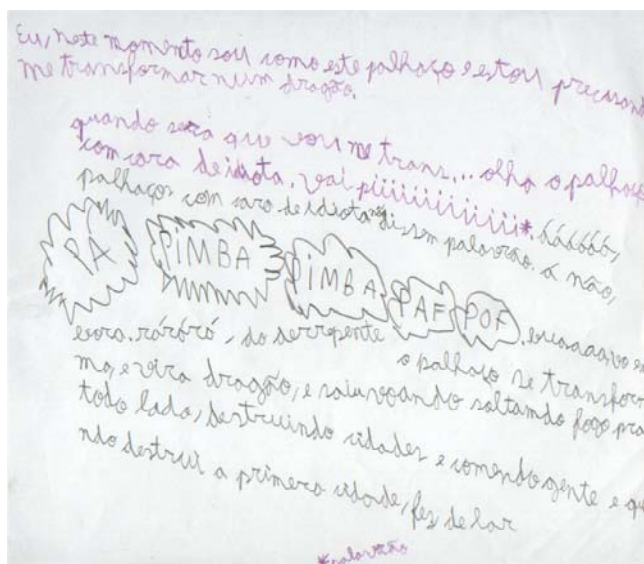 Eu, neste momento sou como este palhaço e estou precisand
me transformar num dragão.
quando será que vou me trans... olha o palhaço
com cara de idiota. vai piiiiiiiiiiiiii*. óóóóóó,
palhaços com cara de idiota não dissem palavrão. á não,
PA PIMBA PIMBA PAF POF
ráróró, do derrepente o palhaço se transfor
ma, e vira dragão, e saiu voando soltando fogo pra
todo lado, destruindo cidades e comendo gente e qu
ndo destrui a primera cidade, fez de lar
*palavrão